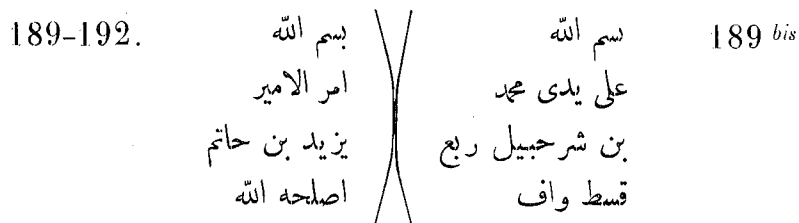 189-192.
بسم الله
امر الامير
يزيد بن حاتم
اصلحه الله
189 bis
بسم الله
على يدى محمد
بن شرحبيل ربع
قسط واف